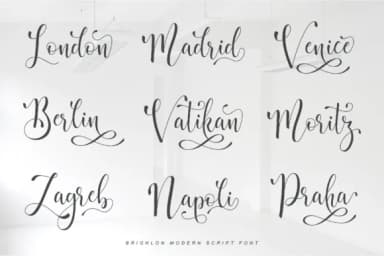 London Madrid Venice
Berlin Vatikan Moritz
Zagreb Napoli Praha
BRICKLON MODERN SCRIPT FONT